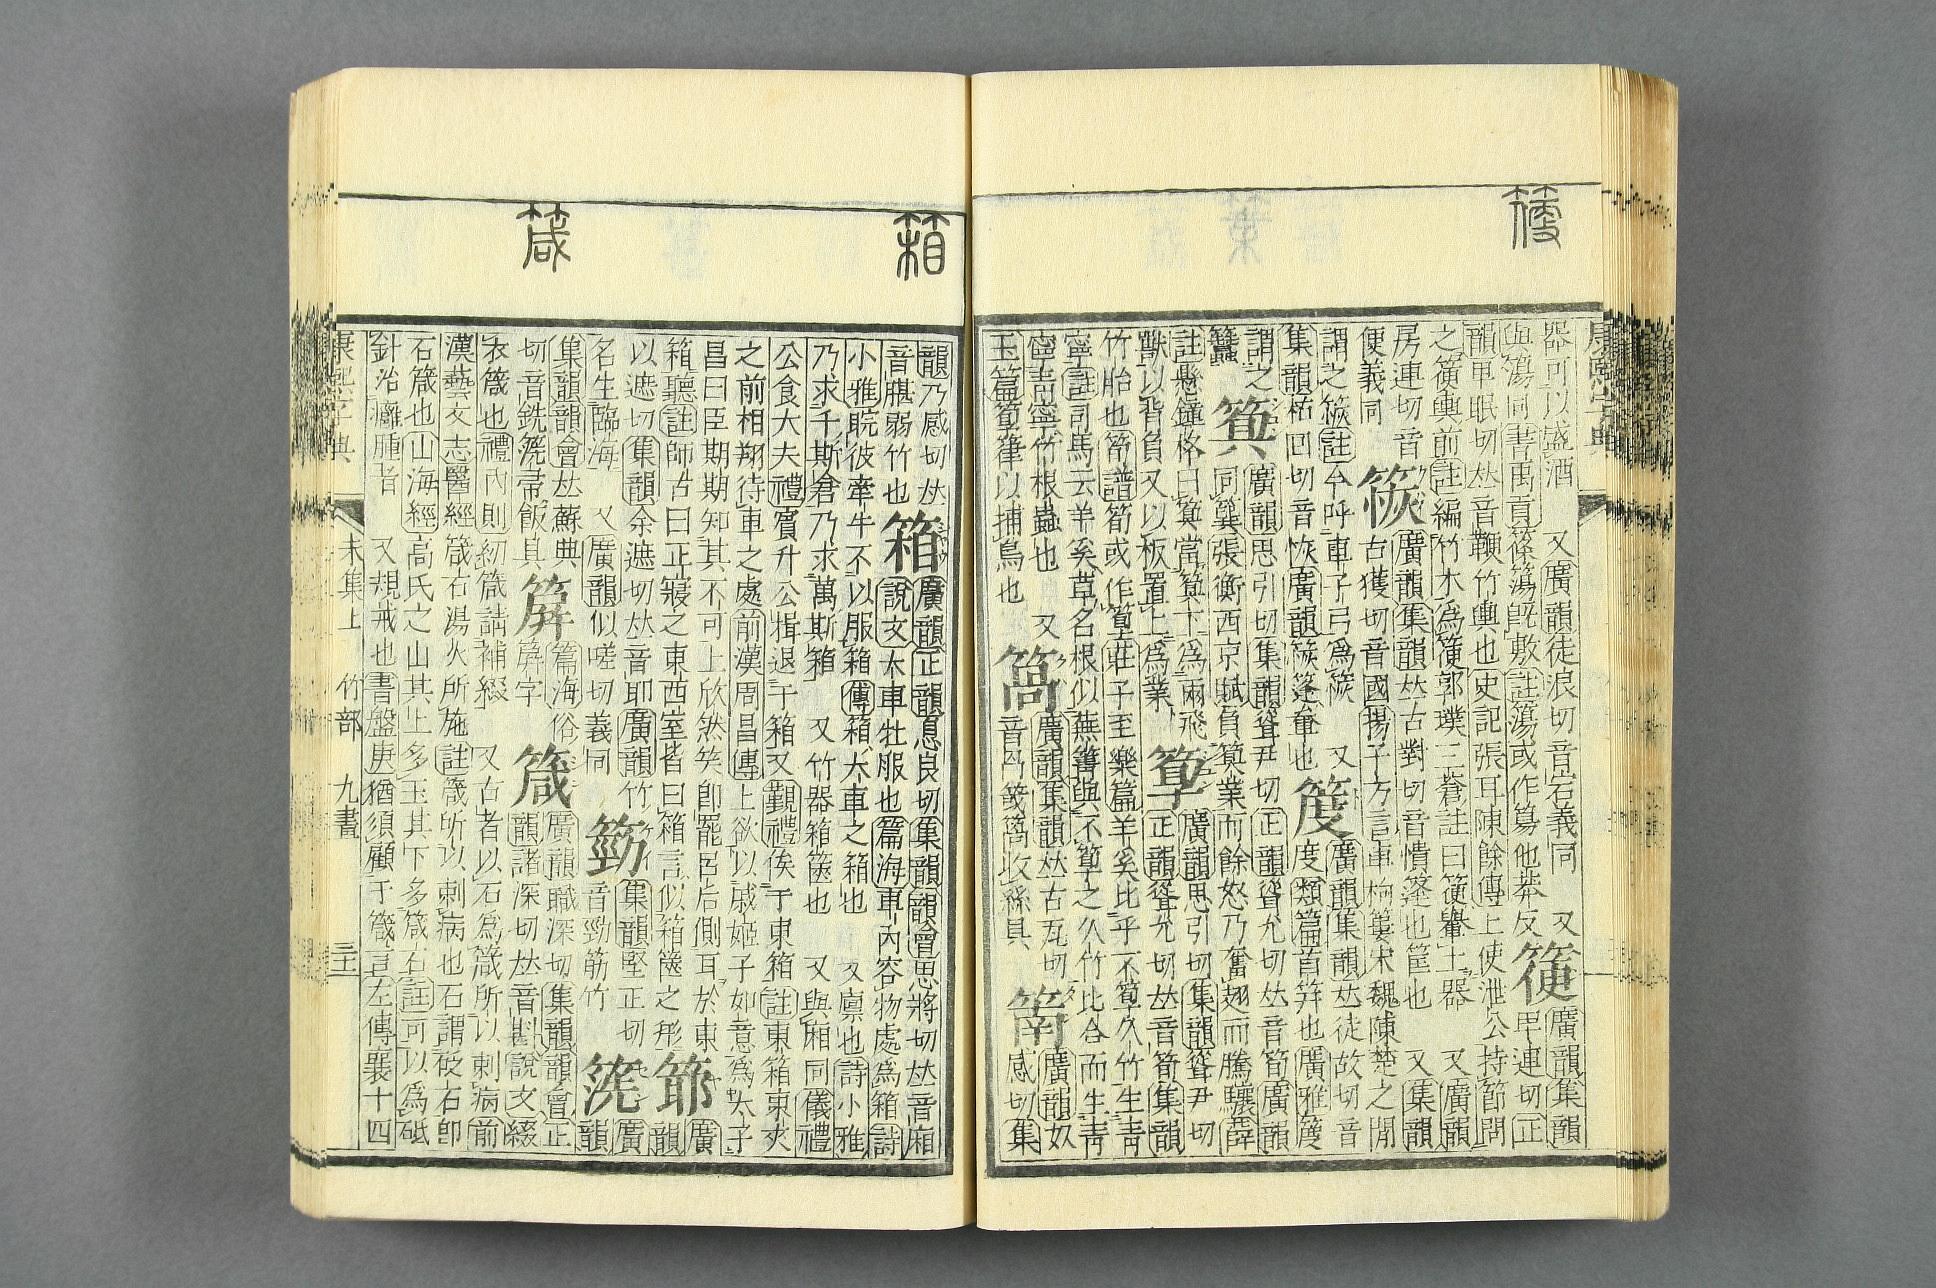 箯
器可以盛酒　又廣韻徒浪切音宕義同　又箯廣韻集韻
與簜同書禹貢篠簜旣敷註簜或作篣他莽反　連切正
韻甲眠切𠀤音鞭竹輿也史記張耳陳餘傳上使泄公持節問
之箯輿前註編竹木爲箯郭璞三蒼註曰箯轝土器　又廣韻
房連切音　廣韻集韻𠀤古對切音憒篷也筐也　又集韻
便義同　古獲切音國揚子方言車枸簍宋魏陳楚之閒
謂之　註今呼車子弓爲　又　廣韻集韻𠀤徒故切音
集韻枯回切音恢廣韻　篷軬也　度類篇首笄也廣雅
謂之　廣韻思引切集韻聳尹切正韻聳允切𠀤音筍廣韻
蠶　同簨張衡西京賦負　業而餘怒乃奮翅而騰驤薛
註懸鐘格曰　當　下爲兩飛　箰廣韻思引切集韻聳尹切
獸以背負又以板置上爲業　正韻聳允切𠀤音筍集韻
竹胎也筍譜筍或作箰莊子至樂篇羊奚比乎不箰久竹生靑
寧註司馬云羊奚草名根似蕪菁與不箰之久竹比合而生靑
寧靑寧竹根蟲也　又　廣韻集韻𠀤古瓦切　䈒廣韻奴
玉篇箰篫以捕鳥也　音冎　收絲具　感切集
箱
韻乃感切𠀤　箱廣韻正韻息良切集韻韻會思將切𠀤音廂
音腩弱竹也　說文大車牝服也篇海車內容物處爲箱詩
小雅睆彼牽牛不以服箱傳箱大車之箱也　又廩也詩小雅
乃求千斯倉乃求萬斯箱　又竹器箱篋也　又與廂同儀禮
公食大夫禮賓升公揖退于箱又覲禮俟于東箱註東箱東夾
之前相翔待車之處前漢周昌傳上欲以戚姬子如意爲太子
昌曰臣期期知其不可上欣然笑卽罷呂后側耳於東
箱聽註師古曰正寢之東西室皆曰箱言似箱篋之形　䈉廣韻
以遮切集韻余遮切𠀤音耶廣韻竹
名生臨海　又廣韻似嗟切義同　音勁筋竹　集韻堅正切　廣韻
集韻韻會𠀤蘇典　篇海俗　箴廣韻職深切集韻韻會正
切音銑箲帚飯具　字　韻諸深切𠀤音斟說文綴
衣箴也禮內則紉箴請補綴　又古者以石爲箴所以刺病前
漢藝文志醫經箴石湯火所施註箴所以刺病也石謂砭石卽
石箴也山海經高氏之山其上多玉其下多箴石註可以爲砥
針治癰腫者　又規戒也書盤庚猶須顧于箴言左傳襄十四
康熙字典　未集上　竹部　九畫
箴